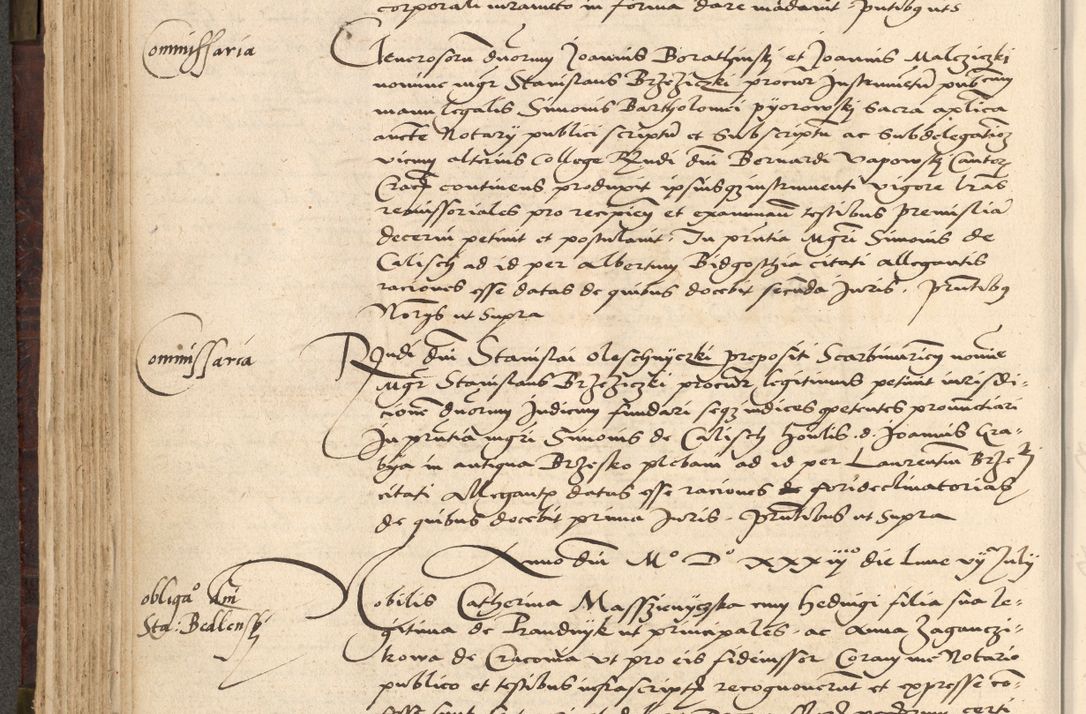 corporali iuramento in forma dare mandavit pntibus uts
Commissaria
Generosorum duorum Joannis Borathinskj et Joannis Malczickj
nomine mgr Stanislaus Brzeziczkj procur Instrumentu pubcum
manu legalis Simonis Bartholomei pyorowskj Sacra aplica
aucte Notarij publici scriptu et Subscriptu ac Subdelegatiois
vicem alterius College Rndi dni Bernardi Vapowskj Cantor
Crac continens produxit ipsiusqz instrumenti vigore lras
remissoriales pro recipien et examinan testibus Premislia
decerni petiut et postulavit. In pntia Mgri Simonis de
Calisch ad id per Albertum Bidgosthia citati allegantis
raciones esse datas de quibus docebit secunda Juris. Pntibus
Norijs ut supra
Commissaria
Rndi dni Stanislai Oleschnyczki prepositi Scarbimirien nomine
Mgr Stanislaus Brzeziczki procur legitimus petiut iurisdi-
cionem duorum Judicum fundari seqz iudices competentes pronunctiari
In pntia mgri Simonis de Calisch honlis d. Joannis Cra-
bya in antiqua Brzesko plebani ad id per Laurentiu Brzezi
citati Allegantis datas esse raciones fori declinatorias
de quibus docebit prima Juris. Pntibus ut supra
Anno dni Mo Do XXXiijcio die lune vij July
obligao dni
Sta: Bedlenskj
Nobilis Catherina Masszienyczska cum hedvigi filia sua le-
gitima de Prandnyk ut principales. ac Anna Zaganczi-
kowa de Cracovia ut pro eis fideiussor Coram me Notario
publico et testibus infrascriptis recognoverunt et expresse con-